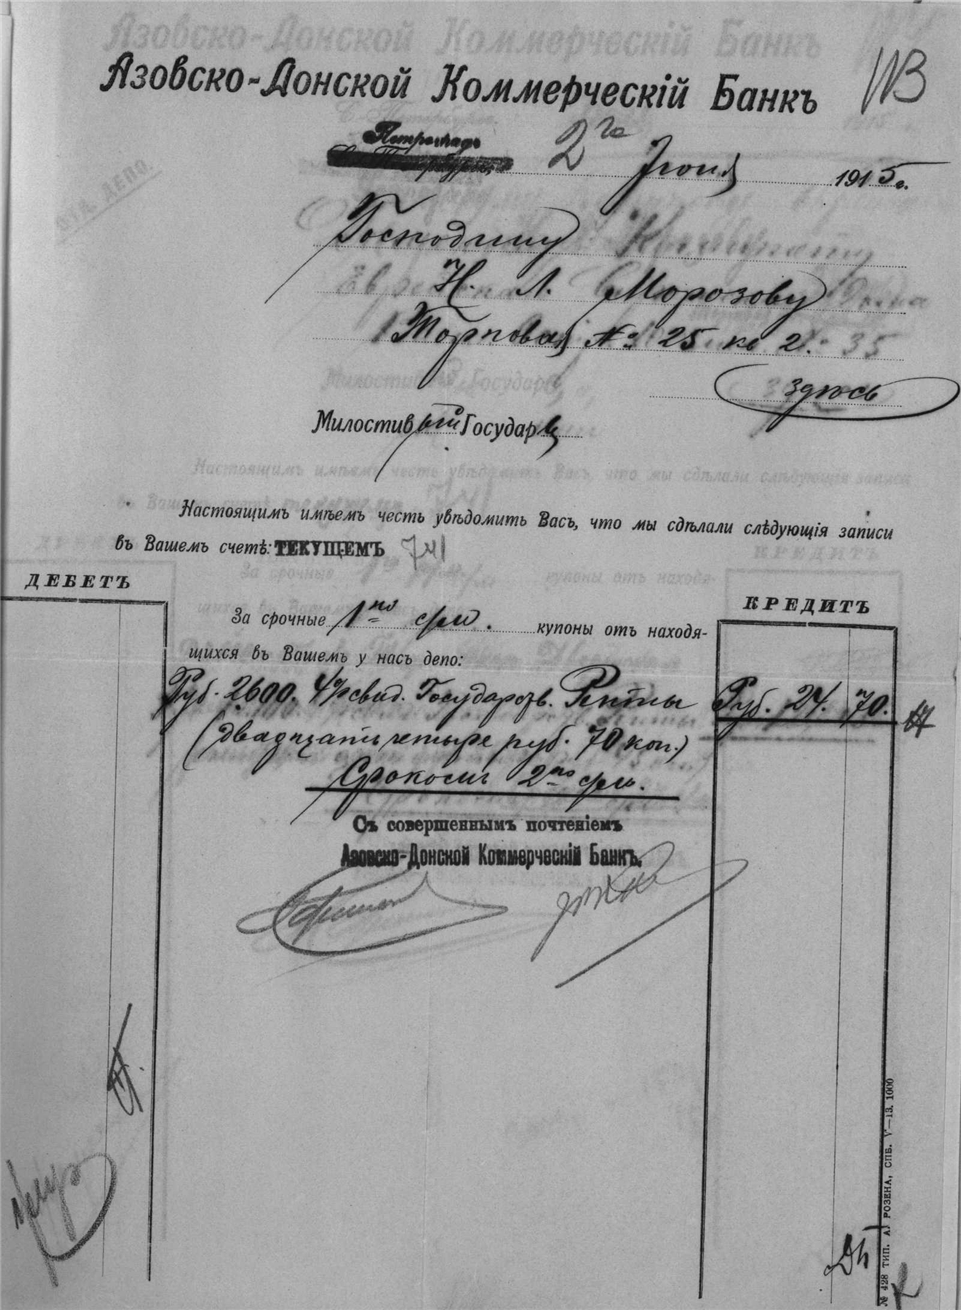 Азовско-Донской Коммерческій Банкъ
Петроградъ 2го Іюня 1915 г.
Господину
Н. Л. Морозову
Торговая № 25 кв 2.
здѣсь
Милостивый Государь
Настоящимъ имѣемъ честь увѣдомить Васъ, что мы сдѣлали слѣдующія записи
въ Вашемъ счетѣ: ТЕКУЩЕМЪ 741
ДЕБЕТЪ
КРЕДИТЪ
За срочные 1го с/м. купоны отъ находя-
щихся въ Вашемъ у насъ депо:
Руб. 2600. 4% свид. Государств. Ренты Руб. 24. 70.
(двадцать четыре руб. 70 коп.)
Срокомъ 2го с/м.
Съ совершеннымъ почтеніемъ
Азовско-Донской Коммерческій Банкъ.
№ 428 ТИП. А. РОЗЕНА, СПБ. V—13. 1000